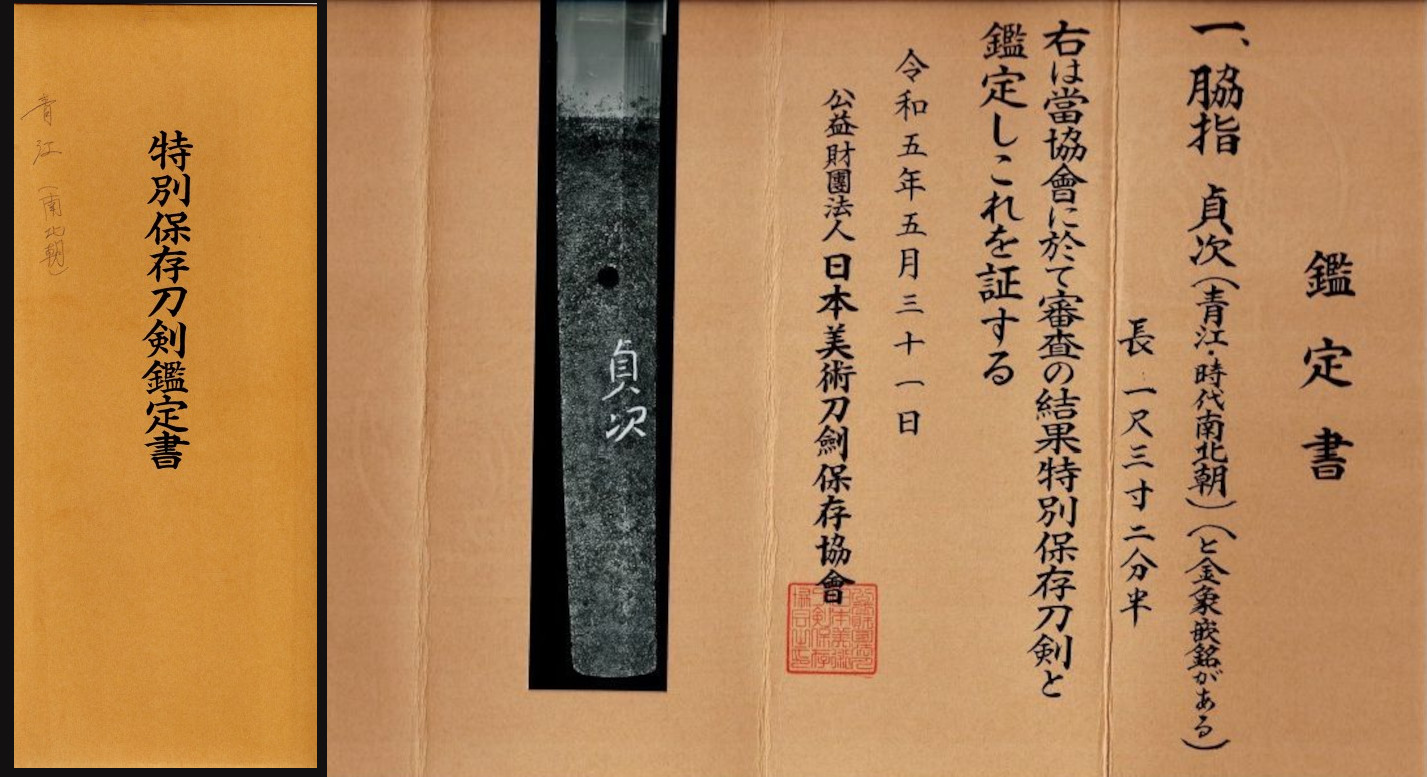 特別保存刀剣鑑定書
青江(南北朝)
鑑定書
一、脇指 貞次(青江・時代南北朝)(と金象嵌銘がある)
長 一尺三寸二分半
右は當協會に於て審査の結果特別保存刀剣と
鑑定しこれを証する
令和五年五月三十一日
公益財團法人 日本美術刀劍保存協會
貞次